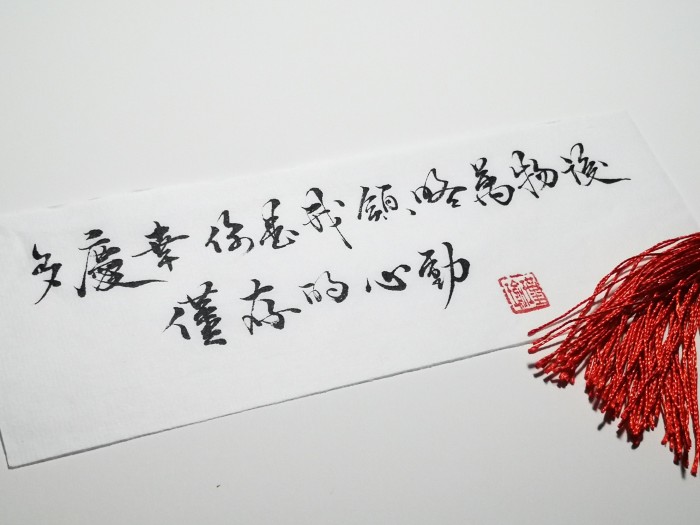 多慶幸你是我領略萬物後
僅存的心動